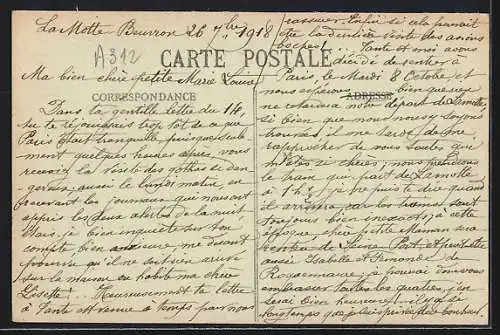 La Motte Beuvron 26 7bre 1918
A312
CARTE POSTALE
CORRESPONDANCE
ADRESSE
Ma bien chère petite Marie Louise
Dans ta gentille lettre du 14,
tu te réjouissais trop tôt de ce que
Paris était tranquille puisque seule-
ment quelques heures après, vous
receviez la visite des gothas si dan-
gereux, aussi le lundi matin, en
recevant les journaux qui nous ont
appris les deux alertes de la nuit
Mais, je bien inquiète sur ton
compte bien, me disant
pourvu qu'il ne soit rien arrivé
sur la maison où habite ma chère
Lisette... Heureusement ta lettre
à Tante est venue à temps pour nous
rassurer. Enfin si cela pouvait
être la dernière visite des avions
boches!... Tante et moi avons
décidé de rentrer à
Paris, le Mardi 8 Octobre et
nous espérons bien que rien
ne retardera notre départ de Lamotte
si bien que nous nous y soyons
trouvées il me tarde de me
rapprocher de vous toutes qui
m'êtes si chères; nous prendrons
le train qui part de Lamotte
à 1h, je ne puis te dire quand
il arrivera car les trains sont
toujours bien inexacts; à cette
époque, chère petite Maman sera
rentrée de Pont, et peut-être
aussi Isabelle et Fernande de
; je pouvoir vous
embrasser toutes les quatre, j'en
serai bien heureuse!... il y a si
longtemps que je suis privée de ce bonheur.